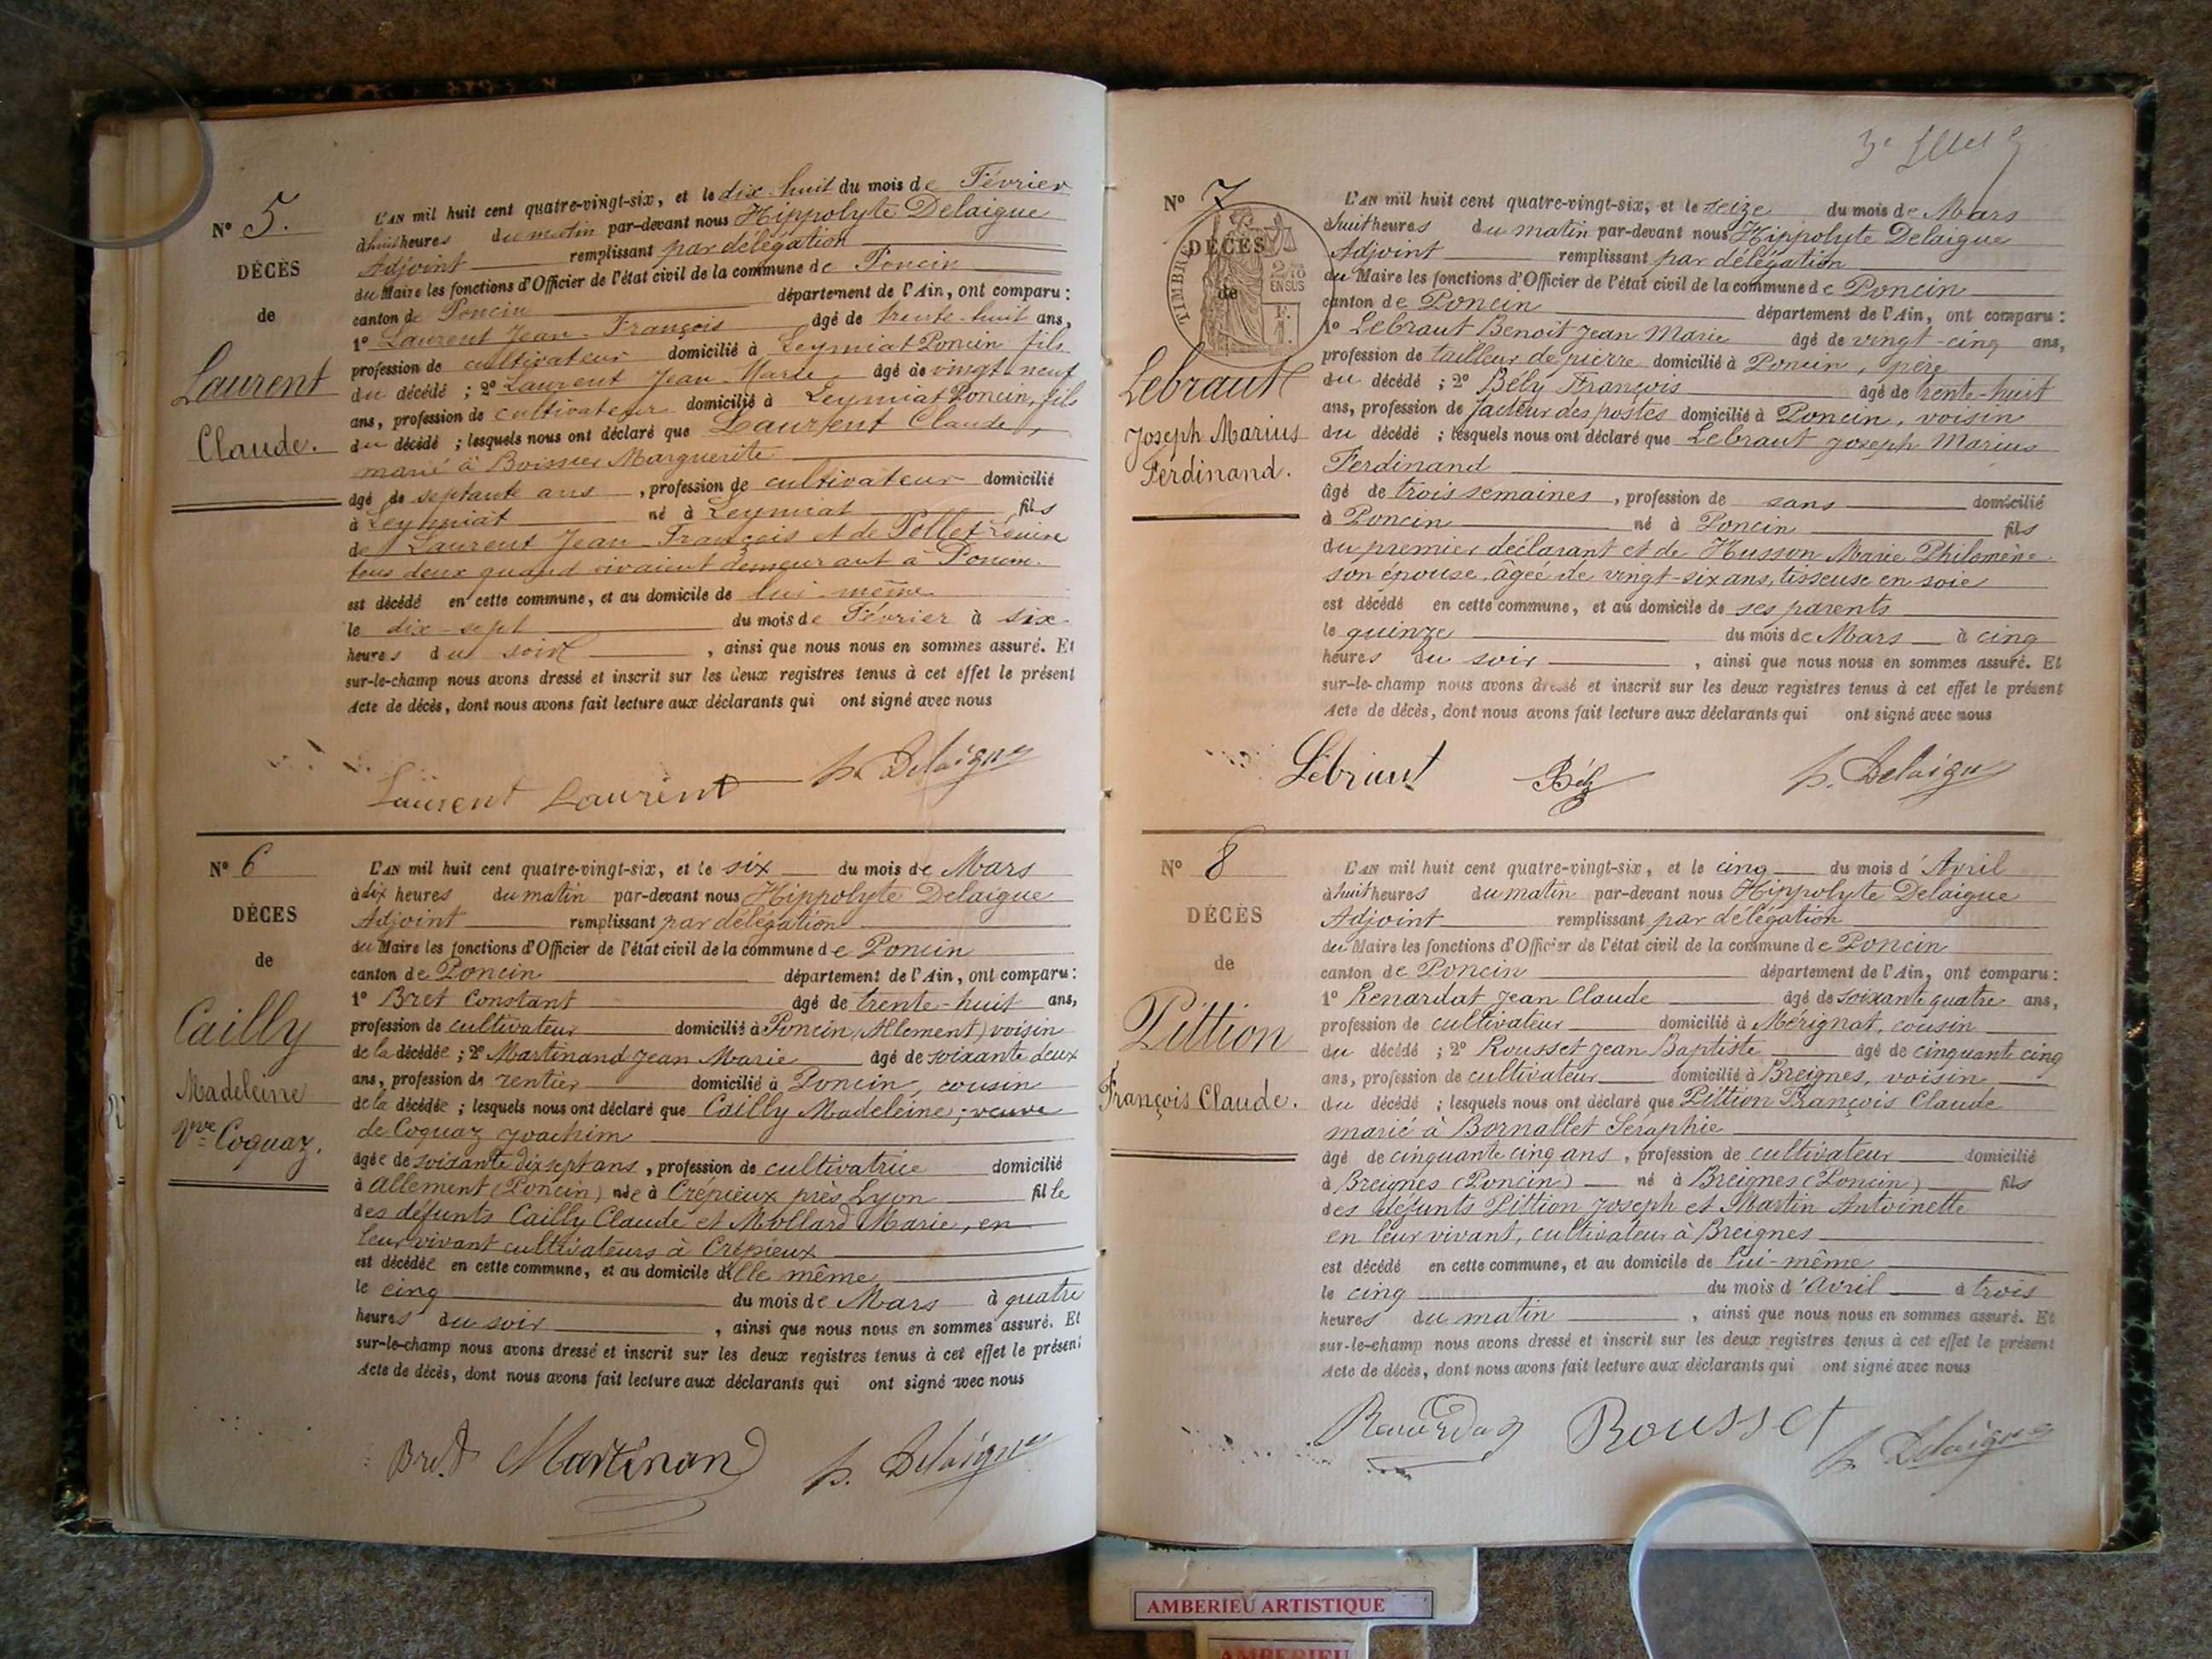 N° 5.
DÉCÈS
de
Laurent
Claude.
L'AN mil huit cent quatre-vingt-six, et le dix-huit du mois de Février
à huit heures du matin par-devant nous Hippolyte Delaigue
Adjoint remplissant par délégation
du Maire les fonctions d'Officier de l'état civil de la commune de Poncin
canton de Poncin département de l'Ain, ont comparu :
1° Laurent Jean-François âgé de trente-huit ans,
profession de cultivateur domicilié à Leymiat Poncin fils
du décédé ; 2° Laurent Jean-Marie âgé de vingt neuf
ans, profession de cultivateur domicilié à Leymiat Poncin, fils
du décédé ; lesquels nous ont déclaré que Laurent Claude,
marié à Boissier Marguerite
âgé de septante ans, profession de cultivateur domicilié
à Leymiat né à Leymiat fils
de Laurent Jean-François et de Pollet Louise
tous deux quand vivaient demeurant à Poncin.
est décédé en cette commune, et au domicile de lui-même
le dix-sept du mois de Février à six
heures du soir, ainsi que nous nous en sommes assuré. Et
sur-le-champ nous avons dressé et inscrit sur les deux registres tenus à cet effet le présent
Acte de décès, dont nous avons fait lecture aux déclarants qui ont signé avec nous
Laurent Laurent h. Delaigue
N° 6
DÉCÈS
de
Cailly
Madeleine
Vve Coquaz.
L'AN mil huit cent quatre-vingt-six, et le six du mois de Mars
à dix heures du matin par-devant nous Hippolyte Delaigue
Adjoint remplissant par délégation
du Maire les fonctions d'Officier de l'état civil de la commune de Poncin
canton de Poncin département de l'Ain, ont comparu :
1° Bret Constant âgé de trente-huit ans,
profession de cultivateur domicilié à Poncin (Allement) voisin
de la décédée ; 2° Martinand Jean Marie âgé de soixante deux
ans, profession de rentier domicilié à Poncin, cousin
de la décédée ; lesquels nous ont déclaré que Cailly Madeleine, veuve
de Coquaz Joachim
âgée de soixante dix sept ans, profession de cultivatrice domicilié
à Allement (Poncin) née à Crépieux près Lyon fille
des défunts Cailly Claude et Mollard Marie, en
leur vivant cultivateurs à Crépieux
est décédée en cette commune, et au domicile d'elle même
le cinq du mois de Mars à quatre
heures du soir, ainsi que nous nous en sommes assuré. Et
sur-le-champ nous avons dressé et inscrit sur les deux registres tenus à cet effet le présent
Acte de décès, dont nous avons fait lecture aux déclarants qui ont signé avec nous
Bret Martinand h. Delaigue
N° 7
TIMBRE
2/10 EN SUS
DÉCÈS
de
Lebraut
Joseph Marius
Ferdinand.
L'AN mil huit cent quatre-vingt-six, et le seize du mois de Mars
à huit heures du matin par-devant nous Hippolyte Delaigue
Adjoint remplissant par délégation
du Maire les fonctions d'Officier de l'état civil de la commune de Poncin
canton de Poncin département de l'Ain, ont comparu :
1° Lebraut Benoit Jean Marie âgé de vingt-cinq ans,
profession de tailleur de pierre domicilié à Poncin, père
du décédé ; 2° Bély François âgé de trente-huit
ans, profession de facteur des postes domicilié à Poncin, voisin
du décédé ; lesquels nous ont déclaré que Lebraut Joseph Marius
Ferdinand
âgé de trois semaines, profession de sans domicilié
à Poncin né à Poncin fils
du premier déclarant et de Husson Marie Philomène
son épouse, âgée de vingt-six ans, tisseuse en soie
est décédé en cette commune, et au domicile de ses parents
le quinze du mois de Mars à cinq
heures du soir, ainsi que nous nous en sommes assuré. Et
sur-le-champ nous avons dressé et inscrit sur les deux registres tenus à cet effet le présent
Acte de décès, dont nous avons fait lecture aux déclarants qui ont signé avec nous
Lébraut Bély h. Delaigue
N° 8
DÉCÈS
de
Pittion
François Claude.
L'AN mil huit cent quatre-vingt-six, et le cinq du mois d'Avril
à huit heures du matin par-devant nous Hippolyte Delaigue
Adjoint remplissant par délégation
du Maire les fonctions d'Officier de l'état civil de la commune de Poncin
canton de Poncin département de l'Ain, ont comparu :
1° Renardat Jean Claude âgé de soixante quatre ans,
profession de cultivateur domicilié à Mérignat, cousin
du décédé ; 2° Rousset Jean Baptiste âgé de cinquante cinq
ans, profession de cultivateur domicilié à Breignes, voisin
du décédé ; lesquels nous ont déclaré que Pittion François Claude
marié à Bornallet Séraphie
âgé de cinquante cinq ans, profession de cultivateur domicilié
à Breignes (Poncin) né à Breignes (Poncin) fils
des défunts Pittion Joseph et Martin Antoinette
en leur vivant, cultivateur à Breignes
est décédé en cette commune, et au domicile de lui-même
le cinq du mois d'Avril à trois
heures du matin, ainsi que nous nous en sommes assuré. Et
sur-le-champ nous avons dressé et inscrit sur les deux registres tenus à cet effet le présent
Acte de décès, dont nous avons fait lecture aux déclarants qui ont signé avec nous
Renardat Rousset h. Delaigue
AMBERIEU ARTISTIQUE
AMBERIEU